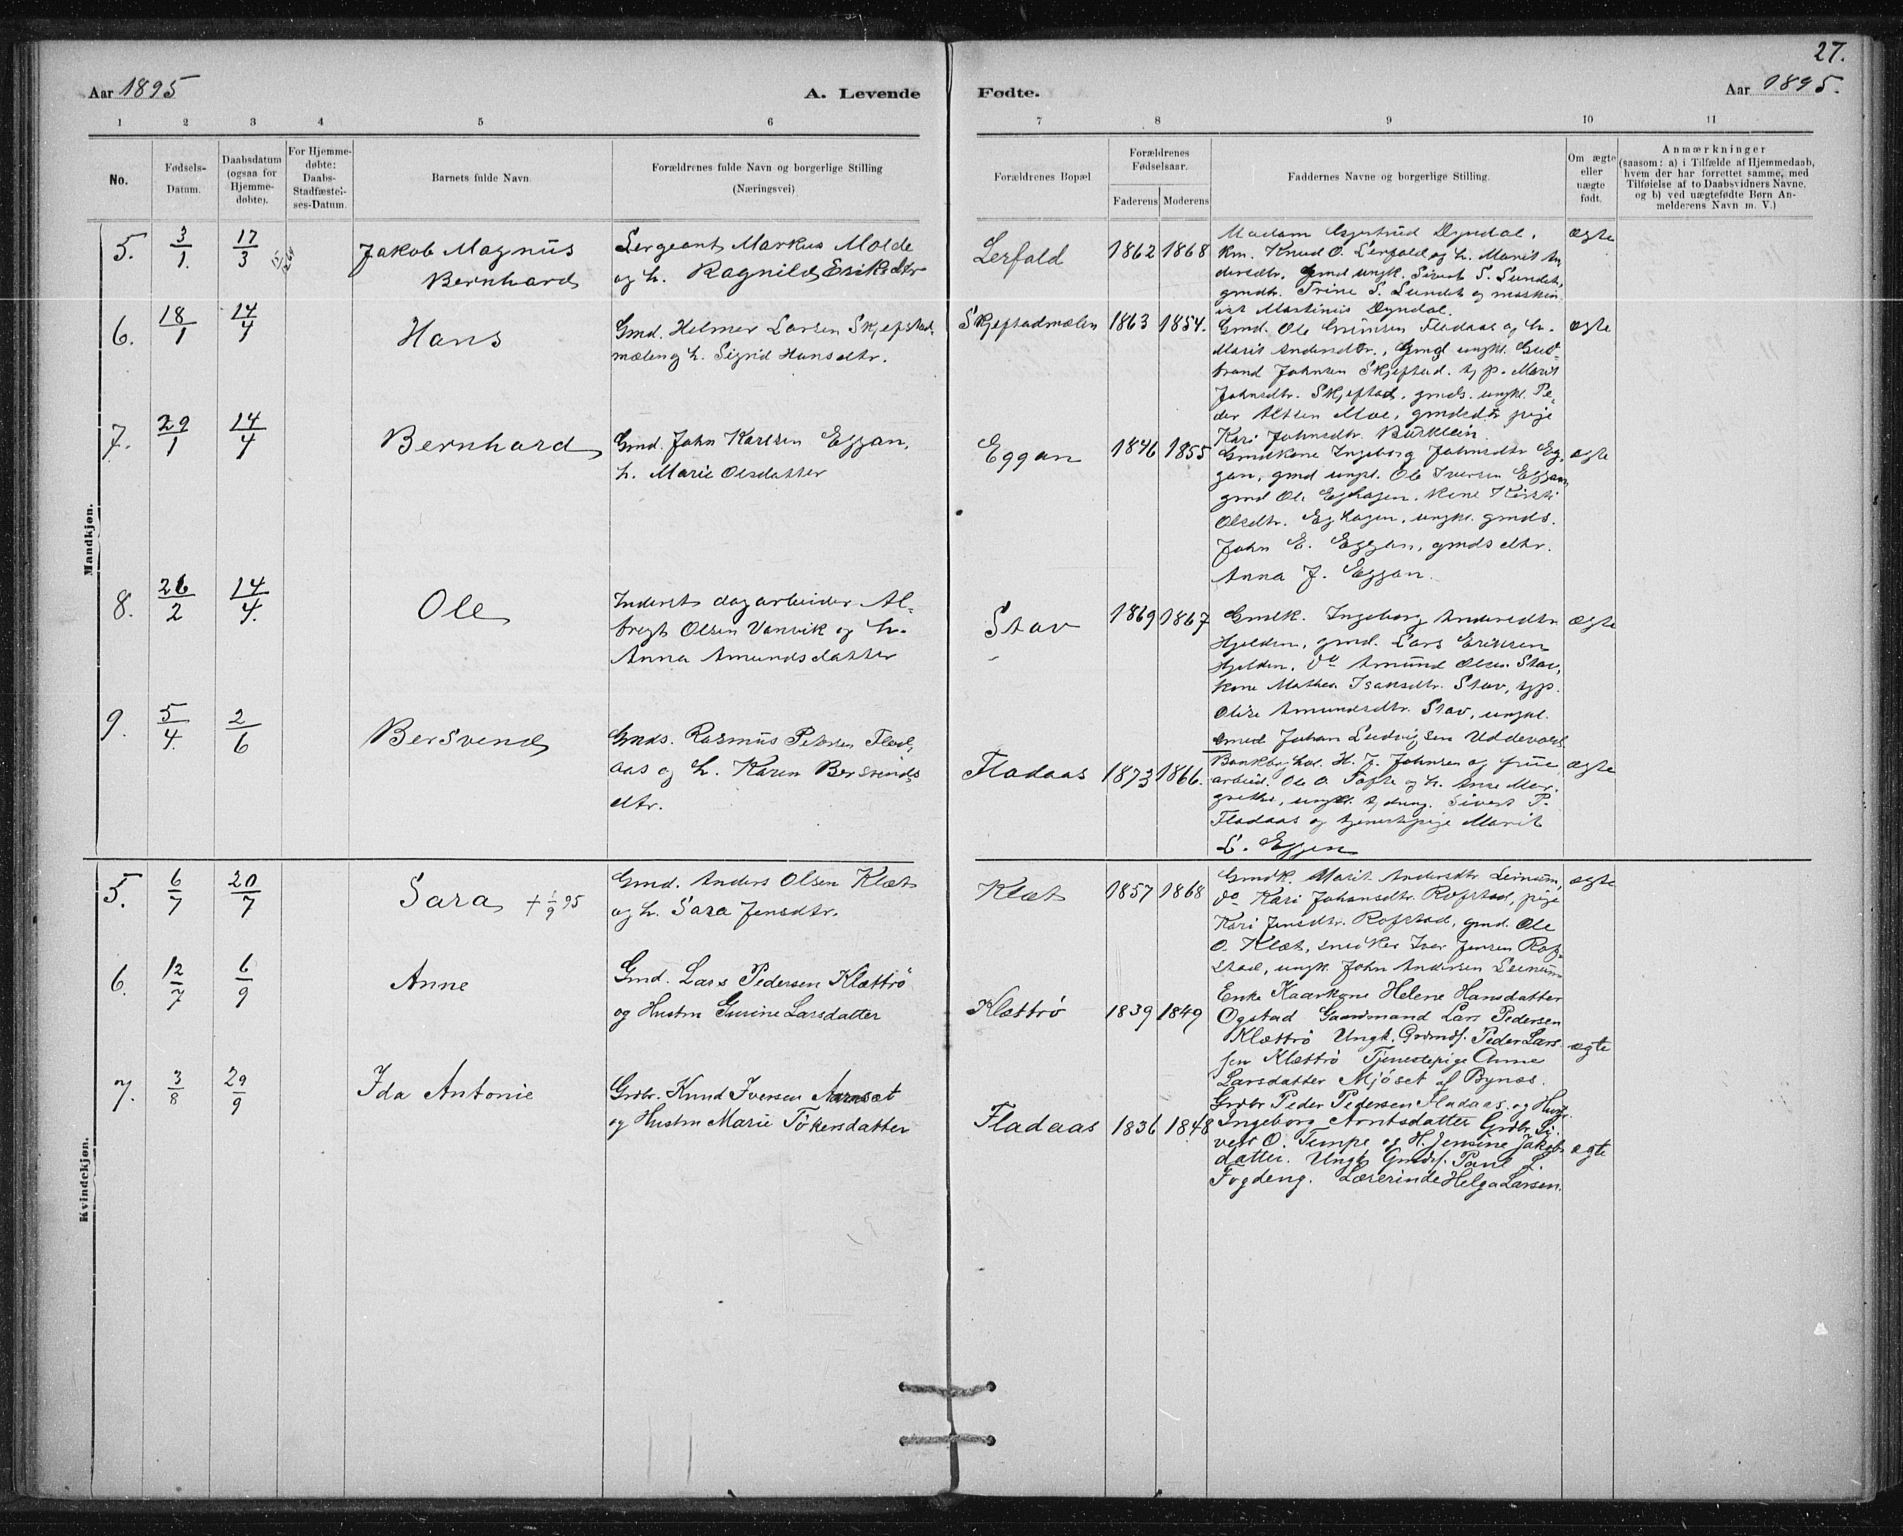 27.
Aar 1895
A. Levende
Fødte.
Aar 1895.
1 2 3 4 5 6 7 8 9 10 11
No.
Fødsels-
Datum.
Daabsdatum
(ogsaa for
Hjemme-
døbte).
For Hjemme-
døbte:
Daabs-
Stadfæstel-
ses-Datum.
Barnets fulde Navn.
Forældrenes fulde Navn og borgerlige Stilling
(Næringsvei)
Forældrenes Bopæl
Forældrenes
Fødselsaar.
Faderens Moderens
Faddernes Navne og borgerlige Stilling.
Om ægte
eller
uægte
født.
Anmærkninger
(saasom: a) i Tilfælde af Hjemmedaab,
hvem der har forrettet samme, med
Tilføielse af to Daabsvidners Navne,
og b) ved uægtefødte Børn An-
melderens Navn m. V.)
Mandkjøn.
5. 3/1. 17/3
Jakob Magnus
Bernhard
Sergeant Markus Molde
og h. Ragnild Eriksdtr
Lerfald 1862 1868
Madam Gjertrud Dyndal,
km. Knud O. Lerfald og h. Marit An
dersdtr, Gmd ungk. Sivert S. Sundet,
gmdtr. Trine S. Sundet og maskin
ist Martinus Dyndal.
ægte
6. 18/1 14/4
Hans
Gmd. Helmer Larsen Skjefstad
mælen og h. Sigrid Hansdtr.
Skjefstadmælen 1863 1854.
Gmd. Ole Fladaas og h.
Marit Andersdtr., Gmd ungk. Gud-
brand Johnsen Skjefstad. tjp. Marit
Johnsdtr. Skjefstad, gmds. ungk. Pe-
der Moe, gmdsdtr pige
Kari Johnsdtr.
ægte
7. 29/1 14/4
Bernhard
Gmd. John Karlsen Eggan,
h. Marie Olsdatter
Eggan 1846 1855
Gmdkone Ingeborg Johnsdtr Eg-
gan, gmd ungk. Ole Iversen Eggan
gmd Ole Eghagen. kone
Olsdtr. Eghagen, ungk. gmds.
John E. Eggan, gmdsdtr.
Anna J. Eggan.
ægte
8. 26/2 14/4.
Ole
Inderst dagarbeider Al-
bregt Olsen Vanvik og h.
Anna Amundsdatter
Stav 1869 1867
Gmdk. Ingeborg Andersdtr
Hjelden, gmd. Lars Eriksen
Hjelden, do Amund Olsen Stav,
kone Mathea Isaksdtr. Stav, tjp.
Oline Amundsdtr. Stav, ungk.
smed Johan Ludvigsen
ægte
9. 5/4. 2/6
Bersvend
Gmds. Rasmus Petersen Flad,
aas og h. Karen Bersvends
dtr.
Fladaas 1873 1866.
H. J. Johnsen og frue,
arbeid. Ole O. Tofte og h. Mar-
grethe, ungk. Sivert P.
Fladaas og tjenestepige Marit
L. Eggen
ægte
Kvindekjøn.
5. 6/7 20/7
Sara † 1/9 95
Gmd. Anders Olsen Klæt
og h. Sara Jensdtr.
Klæt 1857 1868
Gmdk. Marit Andersdtr Leinum,
do Kari Johansdtr. Rofstad, pige
Kari Jensdtr. Rofstad, gmd. Ole
O. Klæt, snedker Iver Jensen Rof-
stad, ungk. John Andersen Leinum
ægte
6. 12/7 6/9
Anne
Gmd. Lars Pedersen Klættrö
og Hustru Gurine Larsdatter
Klættrö 1839 1849
Enke Kaarkone Helene Hansdatter
Ogstad Gaardmand Lars Pedersen
Klættrö Ungk. Grdmds. Peder Lars
sen Klættrö Tjenestepige Anne
Larsdatter Mjöset af Bynæs.
ægte
7. 3/8 29/9
Ida Antonie
Grdbr. Knud Iversen Aarnset
og Hustru Marie Tökersdatter
Fladaas 1836 1848
Grdbr Peder Pedersen Fladaas og Hust.
Ingeborg Arntsdatter Grdbr. Si-
vert O. Tempe og H. Jensine Jakobs
datter. Ungk Gmds. Paul L.
Fogdeng. Lærerinde Helga Larsen.
ægte